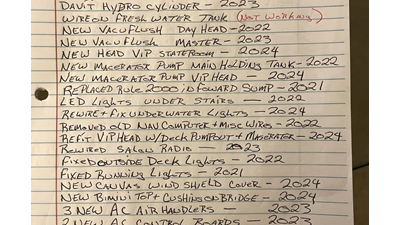 DAVIT HYDRO CYLINDER - 2023
WIRE ON FRESH WATER TANK (NOT WORKING)
NEW VACUFLUSH DAY HEAD - 2022
NEW VACUFLUSH MASTER - 2023
NEW HEAD VIP STATEROOM - 2024
NEW MACERATOR PUMP MAIN HOLDING TANK - 2022
NEW MACERATOR PUMP VIP HEAD - 2024
REPLACED RULE 2000 in FORWARD SUMP - 2021
LED Lights UNDER STAIRS - 2022
REWIRE + FIX UNDERWATER Lights - 2024
REMOVED OLD NAV COMPUTER + MISC WIRES - 2022
REFIT VIP HEAD w/ DECK PUMPOUT + MACERATOR - 2024
REWIRED SALON RADIO - 2023
FIXED OUTSIDE DECK Lights - 2022
FIXED RUNNING Lights - 2021
NEW CANVAS WIND SHIELD COVER - 2024
NEW BIMINI TOP + CUSHIONS ON BRIDGE - 2024
3 NEW AC AIR HANDLERS - 2023
2 NEW AC CONTROL BOARDS - 2023